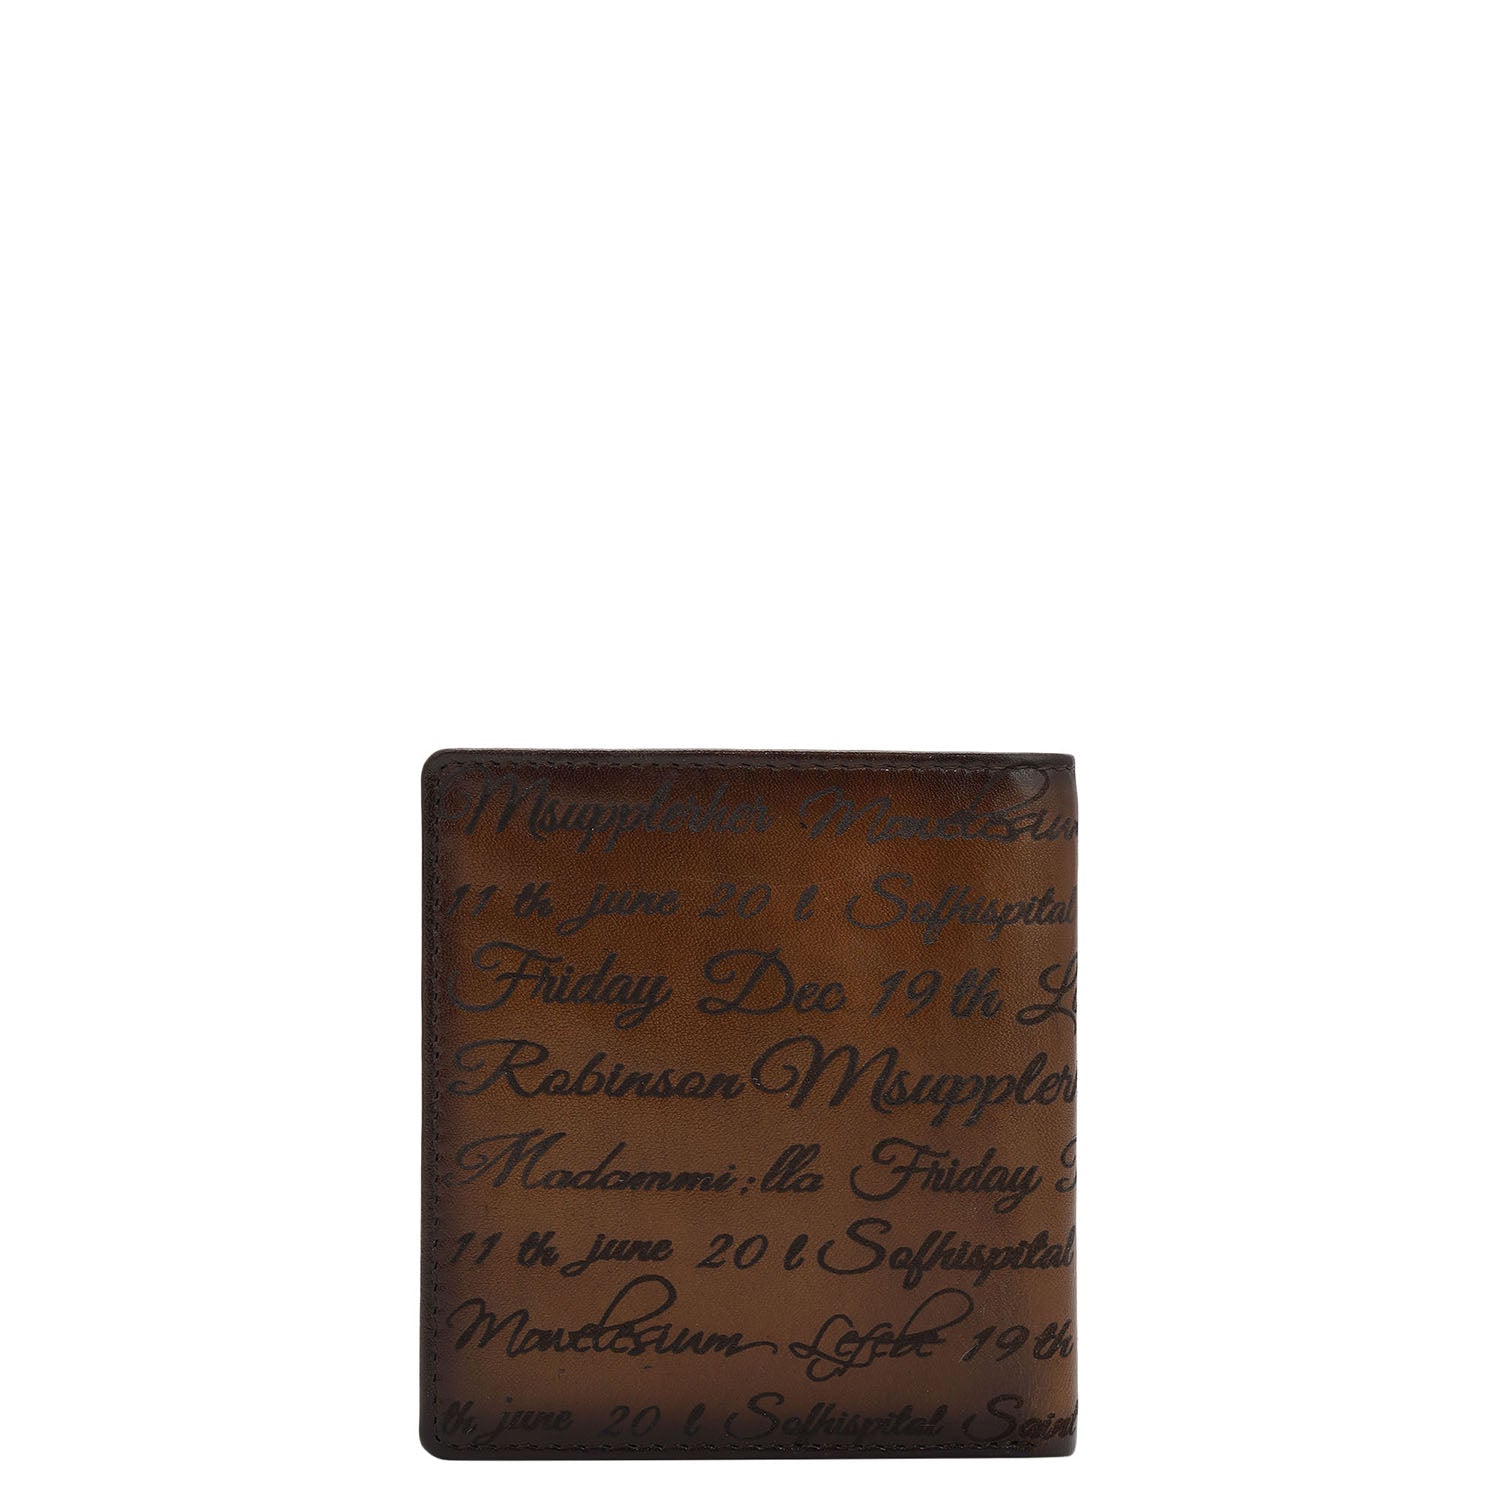 Msupplerher Monelesium
11 th june 20 l Sofhispital
Friday Dec 19 th L
Robinson Msuppler
Madammi;lla Friday
11 th june 20 l Sofhispital
Monelesium Lefebe 19 th
th june 20 l Sofhispital Saint